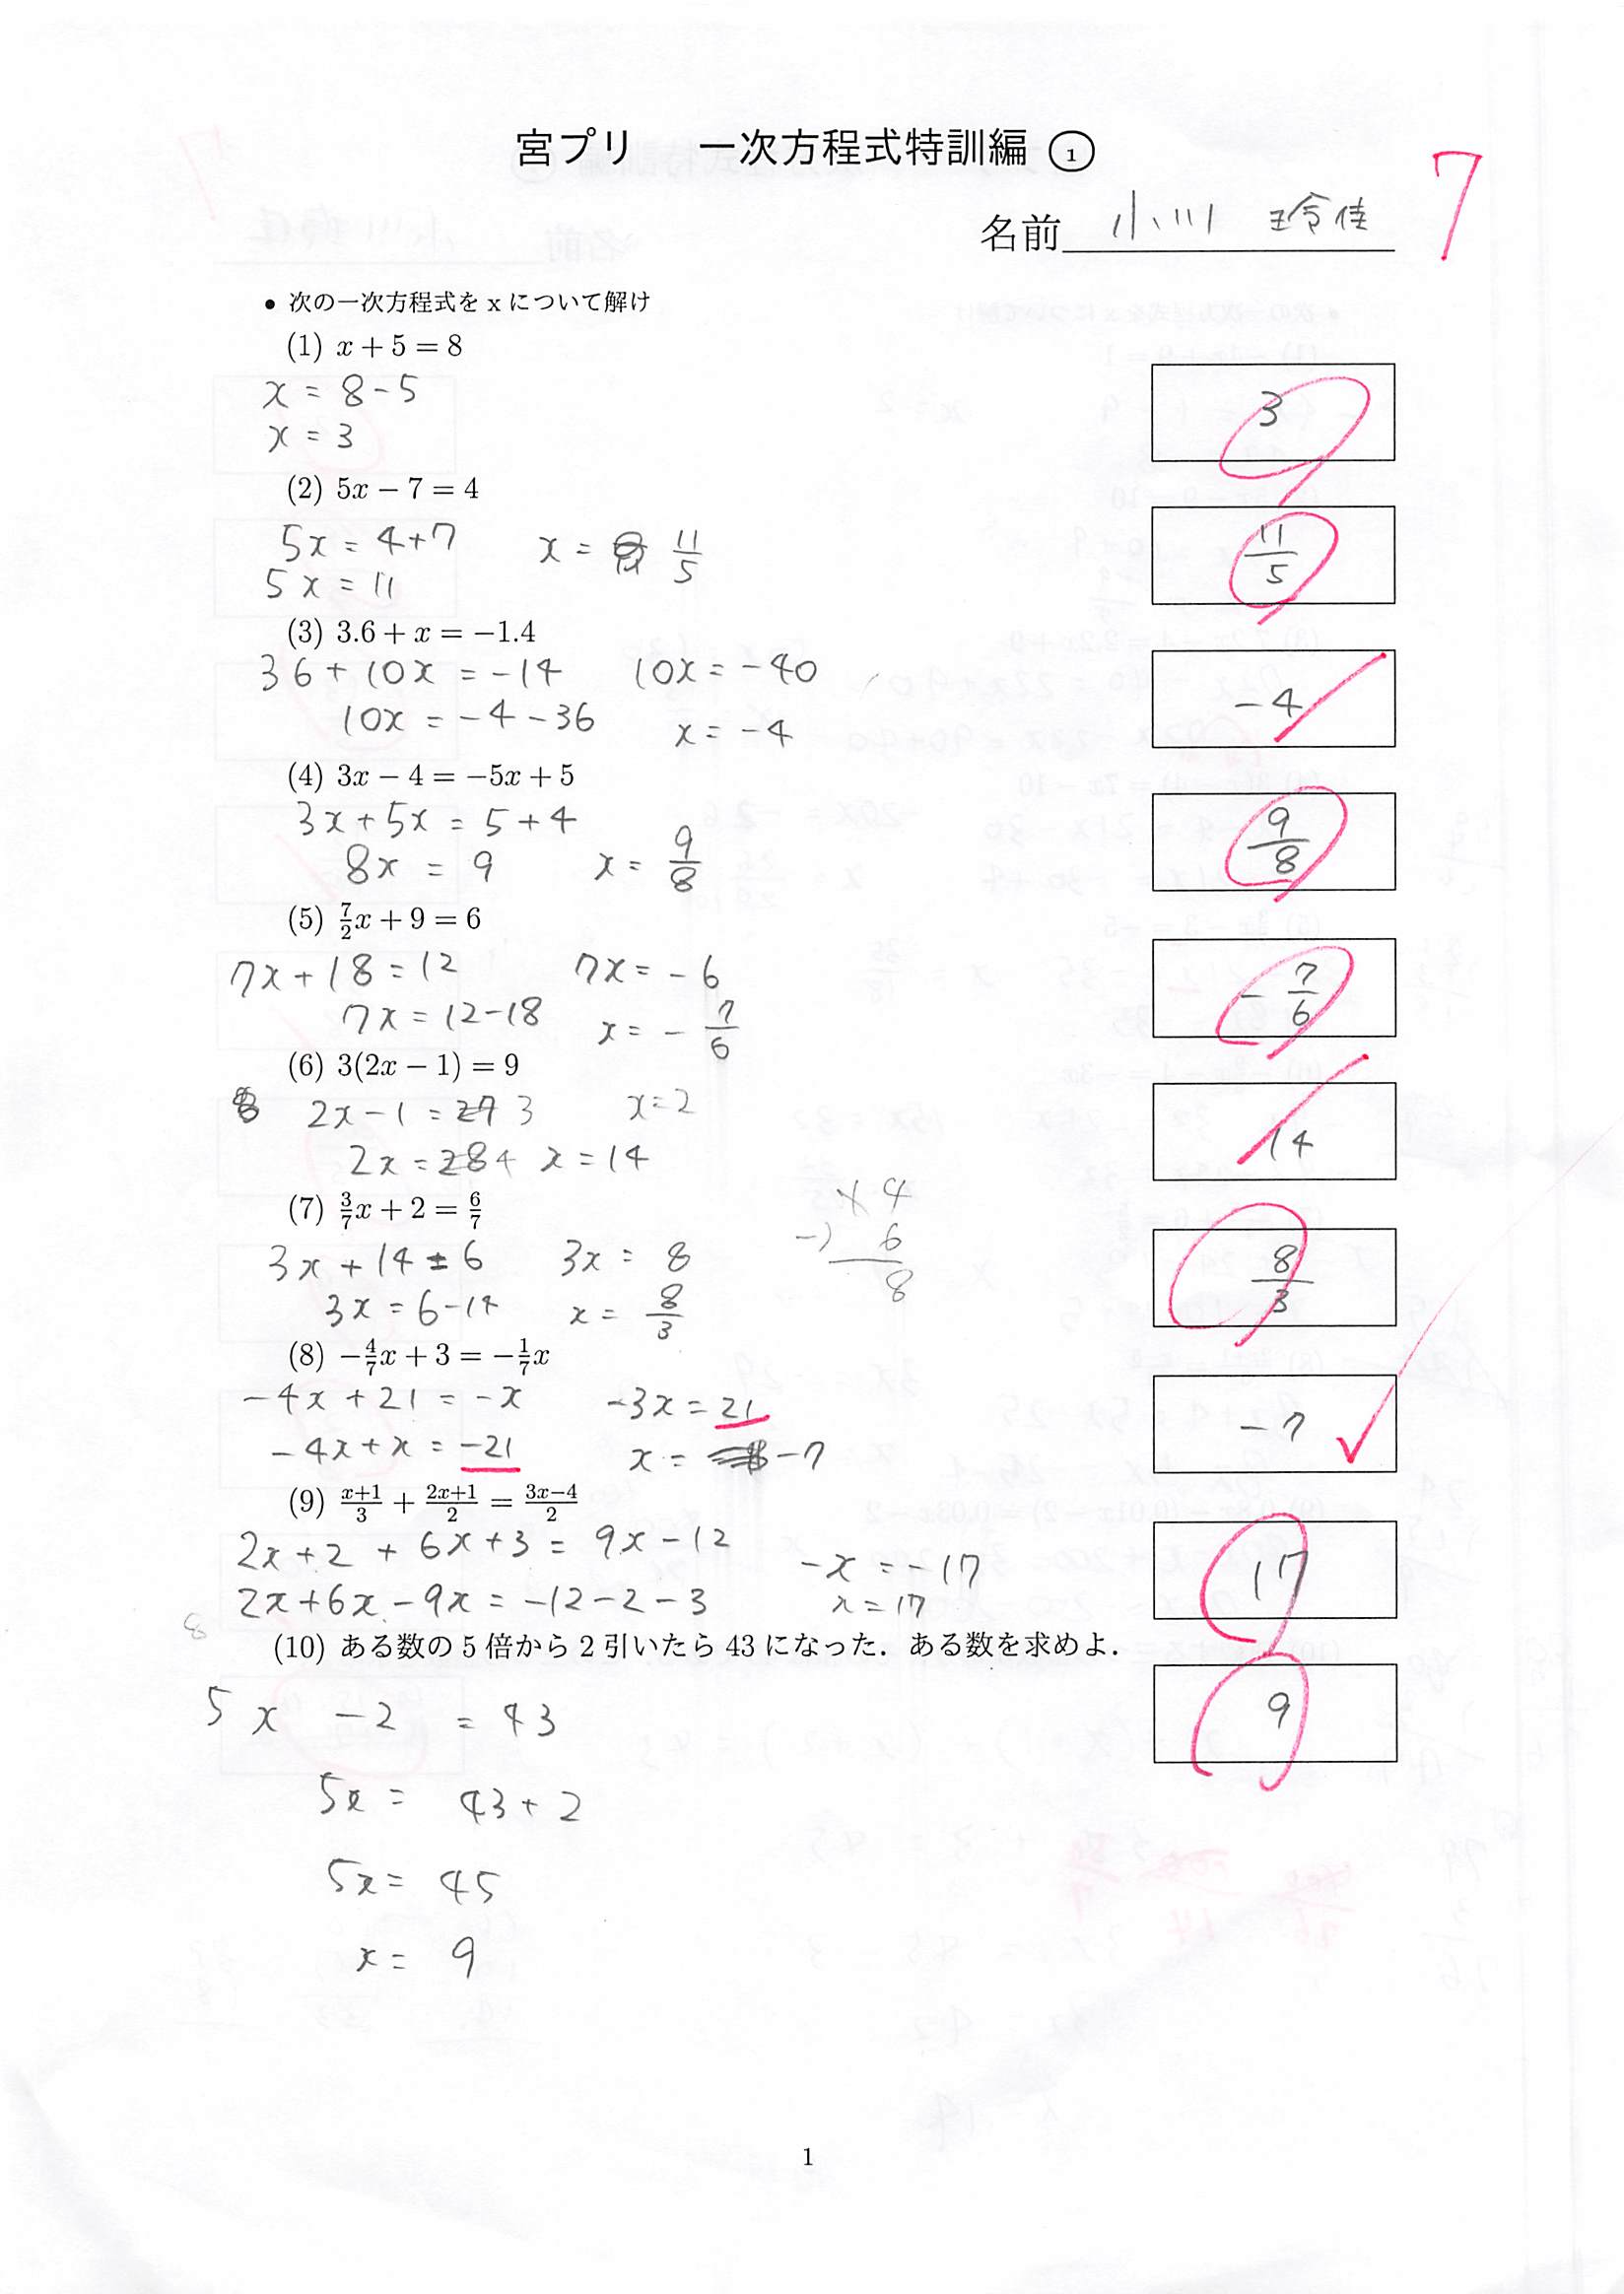 宮プリ 一次方程式特訓編 ①
7
名前 小川 玲佳
• 次の一次方程式を x について解け
(1) x + 5 = 8
x = 8 - 5
x = 3
3
(2) 5x − 7 = 4
5x = 4+7 x = 11/5
5x = 11
11/5
(3) 3.6 + x = −1.4
36 + 10x = -14 10x = -40
10x = -4 - 36 x = -4
-4
(4) 3x − 4 = −5x + 5
3x+5x = 5+4
8x = 9 x = 9/8
9/8
(5) 7/2x + 9 = 6
7x+18 = 12 7x = -6
7x = 12-18 x = - 7/6
- 7/6
(6) 3(2x − 1) = 9
2x-1 = 27 3 x=2
2x = 28 4 x = 14
14
(7) 3/7x + 2 = 6/7
14
-) 6
8
3x + 14 = 6 3x = 8
3x = 6-14 x = 8/3
8/3
(8) −4/7x + 3 = −1/7x
-4x + 21 = -x -3x = 21
-4x+x = -21 x = -7
-7
(9) x+1/3 + 2x+1/2 = 3x−4/2
2x+2 + 6x+3 = 9x-12 -x = -17
2x+6x-9x = -12-2-3 x = 17
17
8
(10) ある数の 5 倍から 2 引いたら 43 になった．ある数を求めよ．
5x -2 = 43
9
5x = 43+2
5x = 45
x = 9
1